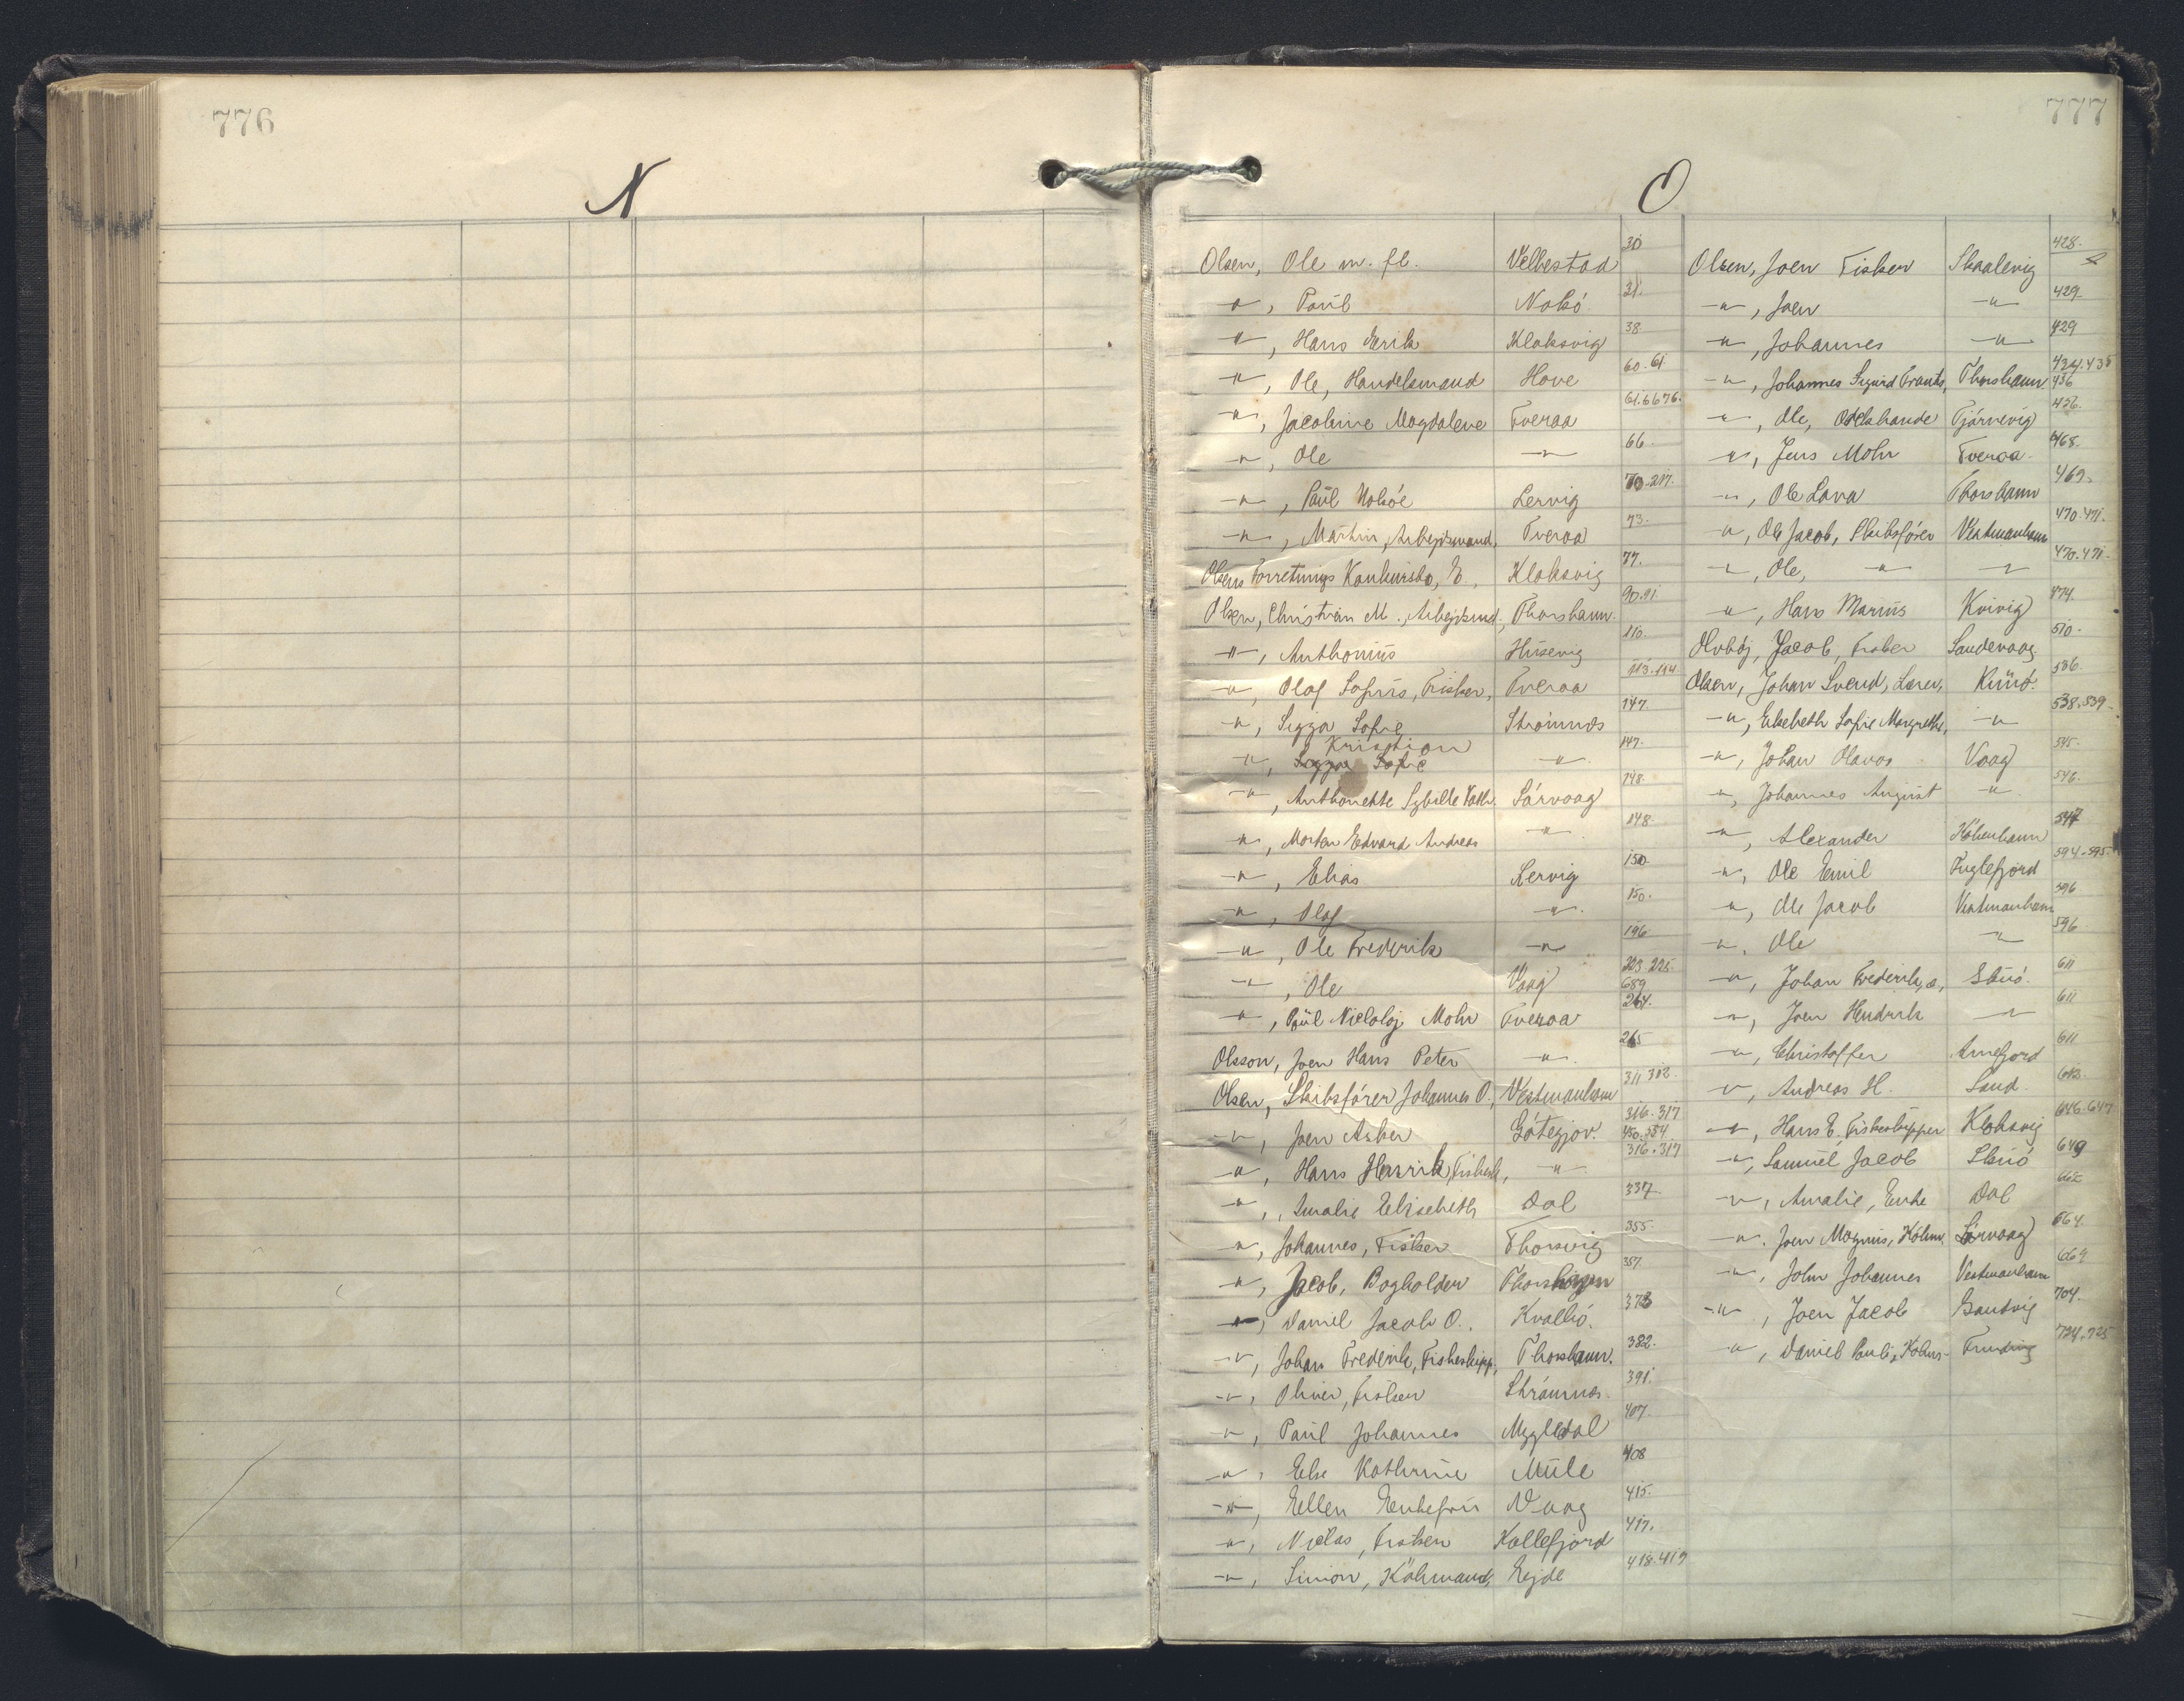 776
N
777
O
Olsen, Ole m. fl. Velbestad 30
-"-, Paul Nolsö 31.
-"-, Hans Jerik Klaksvig 38
-"-, Ole, Handelsmand Hove 60.61
-"-, Jacobine Magdalene Tveraa 61.66 76.
-"-, Ole -"- 66.
-"-, Paul Nolsöe Lervig 70.217.
-"-, Martin, Arbejdsmand, Tveraa 73.
Olsens Forretnings Konkursbo, E., Klaksvig 77.
Olsen, Christian M., Arbejdsmd., Thorshavn. 90.91
-"-, Anthonius Husevig 110.
-"-, Olaf Sofus, Fisker, Tveraa 113.114.
-"-, Sigga Sofie Strömnæs 147.
-"-, Kristian -"- 147.
-"-, Anthonette Sybille Kath. Sörvaag 148
-"-, Morten Edvard Andreas -"- 148.
-"-, Elias Lervig 150
-"-, Olaf -"- 150.
-"-, Ole Frederik -"- 196
-"-, Ole Vaag 223.225. 689
-"-, Paul Nicolaj Mohr Tveraa 264.
Olsson, Joen Hans Peter -"- 265
Olsen, Skibsfører Johannes O., Vestmanhavn 311 312.
-"-, Joen Asker Götegjov. 316.317 450.534
-"-, Hans Henrik, Fiskesk., -"- 316.317
-"-, Amalie Elisebeth Dal 337.
-"-, Johannes, Fisker Thorsvig 355.
-"-, Jacob, Bogholder Thorshavn 357.
-"-, Daniel Jacob O. Kvalbö. 373
-"-, Johan Frederik, Fiskeskipp., Thorshavn. 382.
-"-, Oliver, Fisker Strömnæs. 391.
-"-, Paul Johannes Mygledal 407.
-"-, Else Kathrine Mule 408
-"-, Ellen Enkefru Vaag 415.
-"-, Niclas, Fisker Kollefjord 417.
-"-, Simon, Købmand, Ejde 418.419
Olsen, Joen Fisker Skaalevig 428.
-"-, Joen -"- 429
-"-, Johannes -"- 429
-"-, Johannes Sigurd Frants, Thorshavn 434.435 436
-"-, Ole, Odelsbonde Tjörnevig 456.
-"-, Jens Mohr Tveraa. 468.
-"-, Ole Lava Thorshavn 469.
-"-, Ole Jacob, Skibsfører Vestmanhavn 470.471.
-"-, Ole, -"- -"- 470.471.
-"-, Hans Marius Kvivig 474.
Olvhöj, Jacob, Fisker Sandevaag. 510.
Olsen, Johan Svend, Lærer, Kunö. 536.
-"-, Elsebeth Sofie Margrethe, -"- 538.539
-"-, Johan Olavus Vaag 545.
-"-, Johannes August -"- 546.
-"-, Alexander København 547
-"-, Ole Emil Fuglefjord 594.595.
-"-, Ole Jacob Vestmanhavn 596
-"-, Ole -"- 596
-"-, Johan Frederik, Skuö. 611
-"-, Joen Hendrik -"- 611
-"-, Christoffer Arnefjord 611
-"-, Andreas H. Sand. 613.
-"-, Hans E. Fiskeskipper Klaksvig 646.647
-"-, Samuel Jacob Skuö 649
-"-, Amalie, Enke Dal 662
-"-, Joen Magnus, Købm. Sörvaag 664.
-"-, John Johannes Vestmanhavn 664
-"-, Joen Jacob Sandvig 704.
-"-, Daniel Pauli, Købm. Funding 724.725